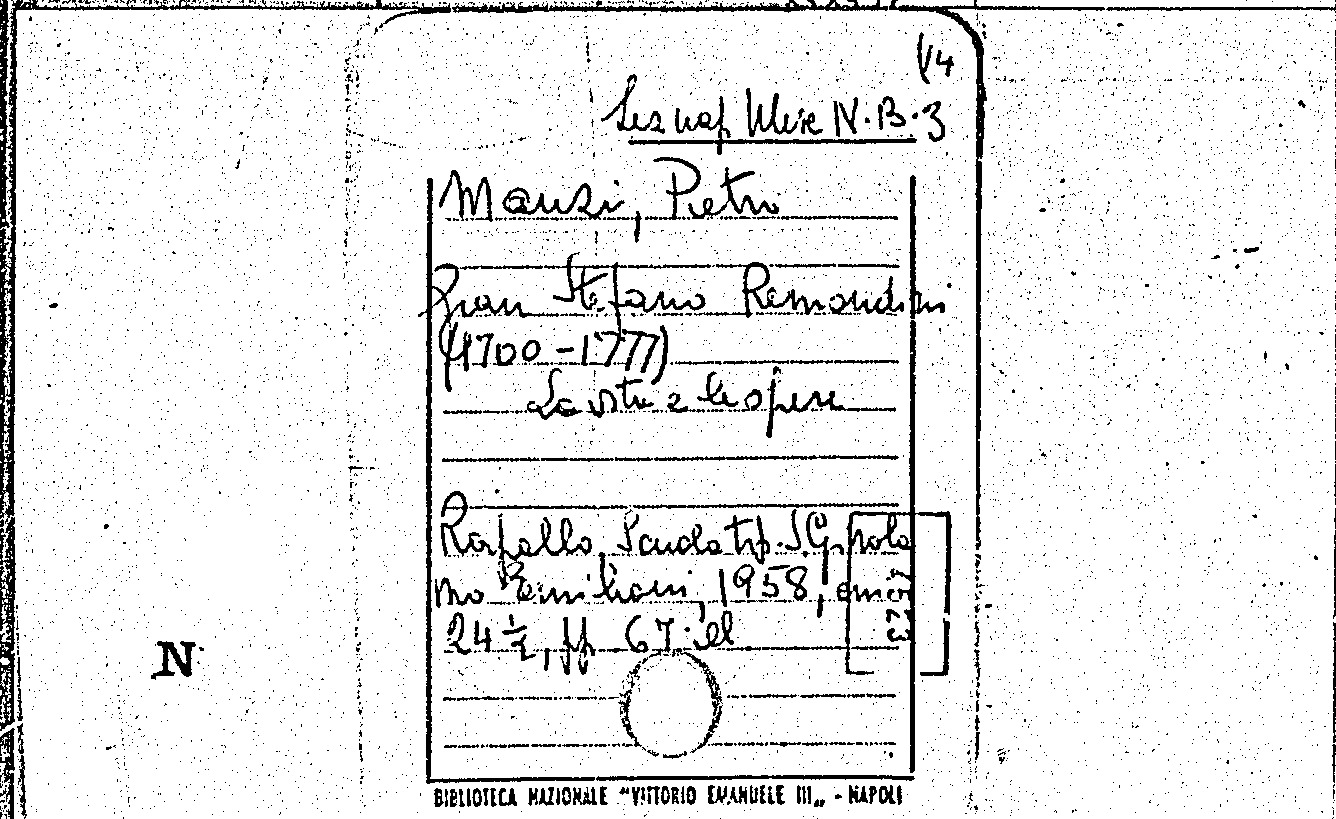 1/4
Sez nap Misc N.B.3
Manzi, Pietro
Gian Stefano Remondini
(1700-1777)
La vita e le opere
Rapallo, Scuola tip. S. Girola
mo Emiliani, 1958, cm
24 ½, pp 67 ill
N
BIBLIOTECA NAZIONALE "VITTORIO EMANUELE III„ - NAPOLI